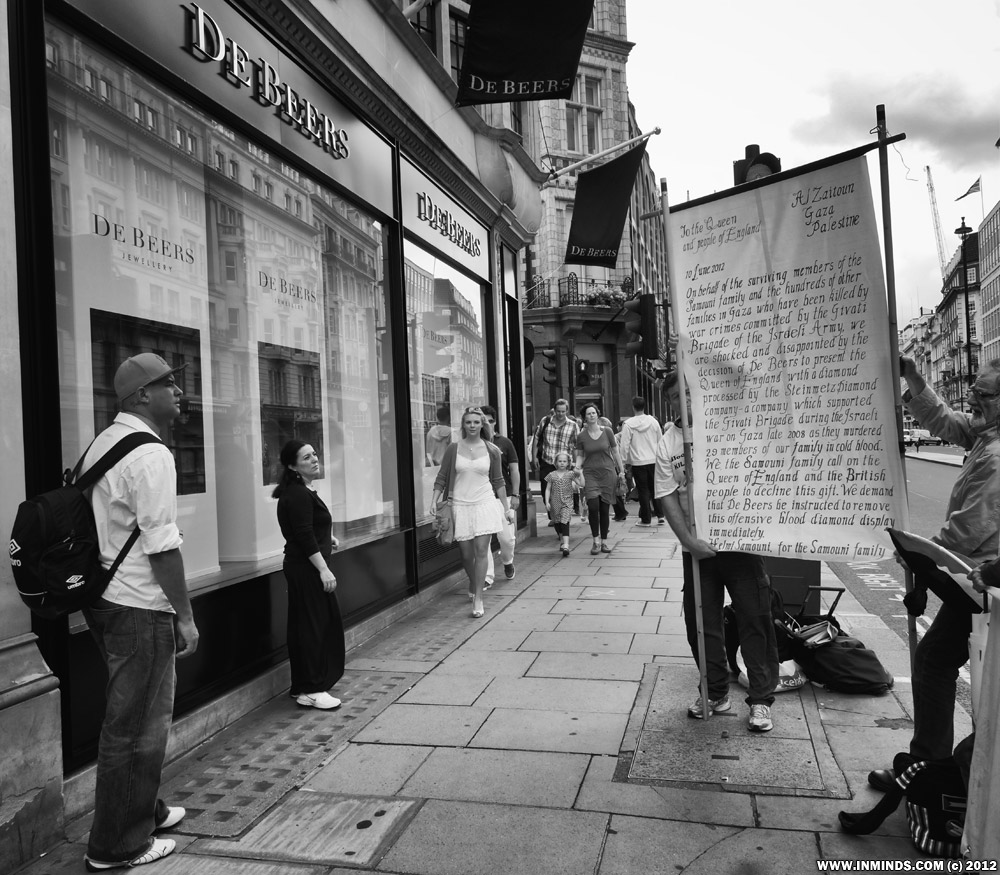 DE BEERS
DE BEERS
DE BEERS
DE BEERS
DE BEERS
JEWELLERY
DE BEERS
JEWELLERY
DE BEERS
umbro
To the Queen
and people of England
Al Zaitoun
Gaza
Palestine
10 June 2012
On behalf of the surviving members of the
Samouni family and the hundreds of other
families in Gaza who have been killed by
war crimes committed by the Givati
Brigade of the Israeli Army, we
are shocked and disappointed by the
decision of De Beers to present the
Queen of England with a diamond
processed by the Steinmetz diamond
company - a company which supported
the Givati Brigade during the Israeli
war on Gaza late 2008 as they murdered
29 members of our family in cold blood.
We the Samouni family call on the
Queen of England and the British
people to decline this gift. We demand
that De Beers be instructed to remove
this offensive blood diamond display
immediately.
Helmi Samouni, for the Samouni family
WWW.INMINDS.COM (c) 2012